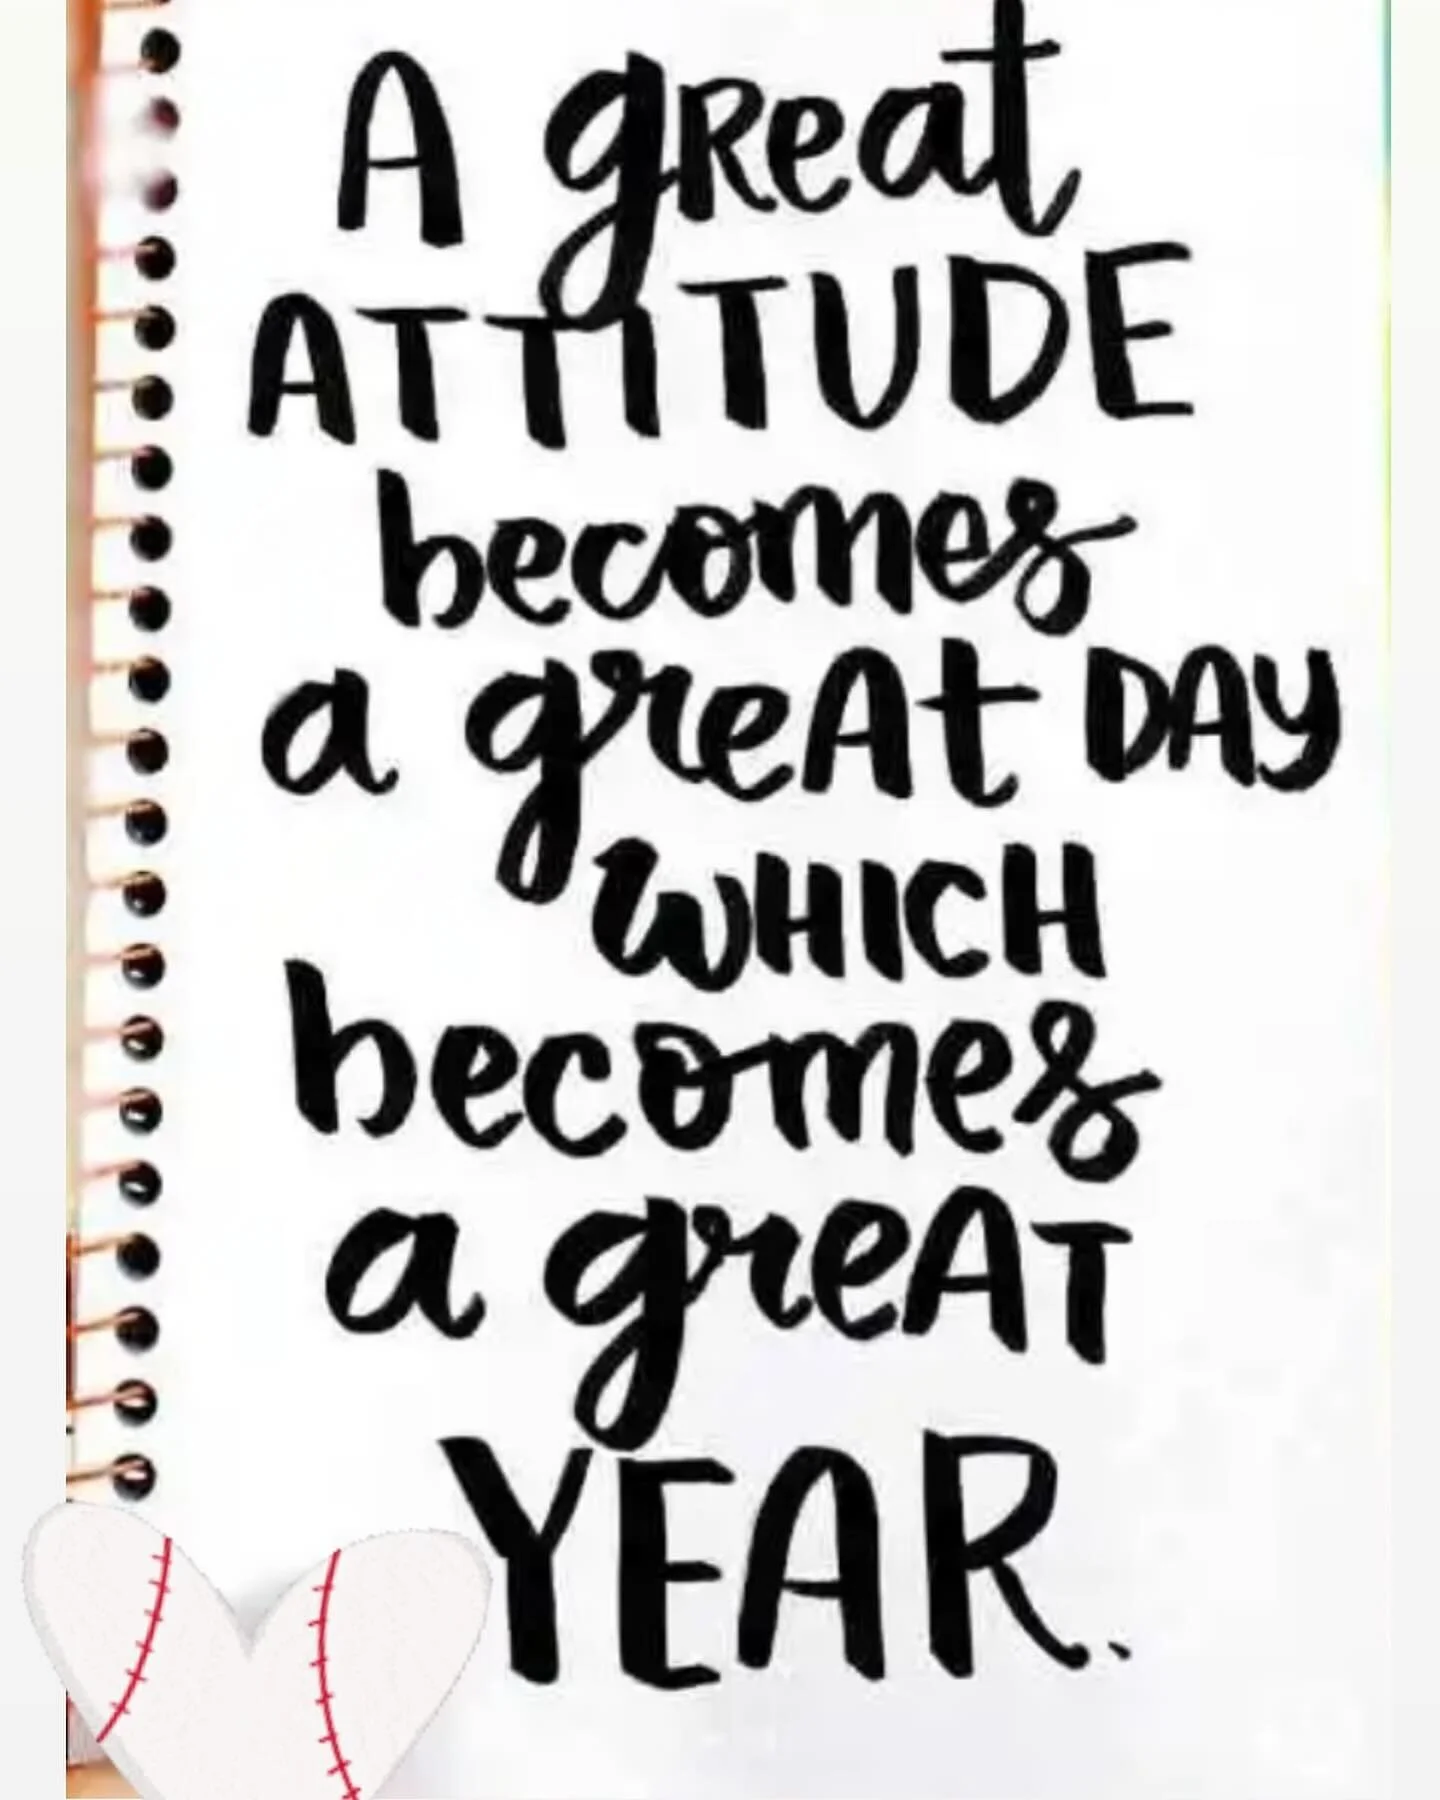 A gReat
ATTITUDE
becomes
a greAt DAY
WHICH
becomes
a greAT
YEAR.